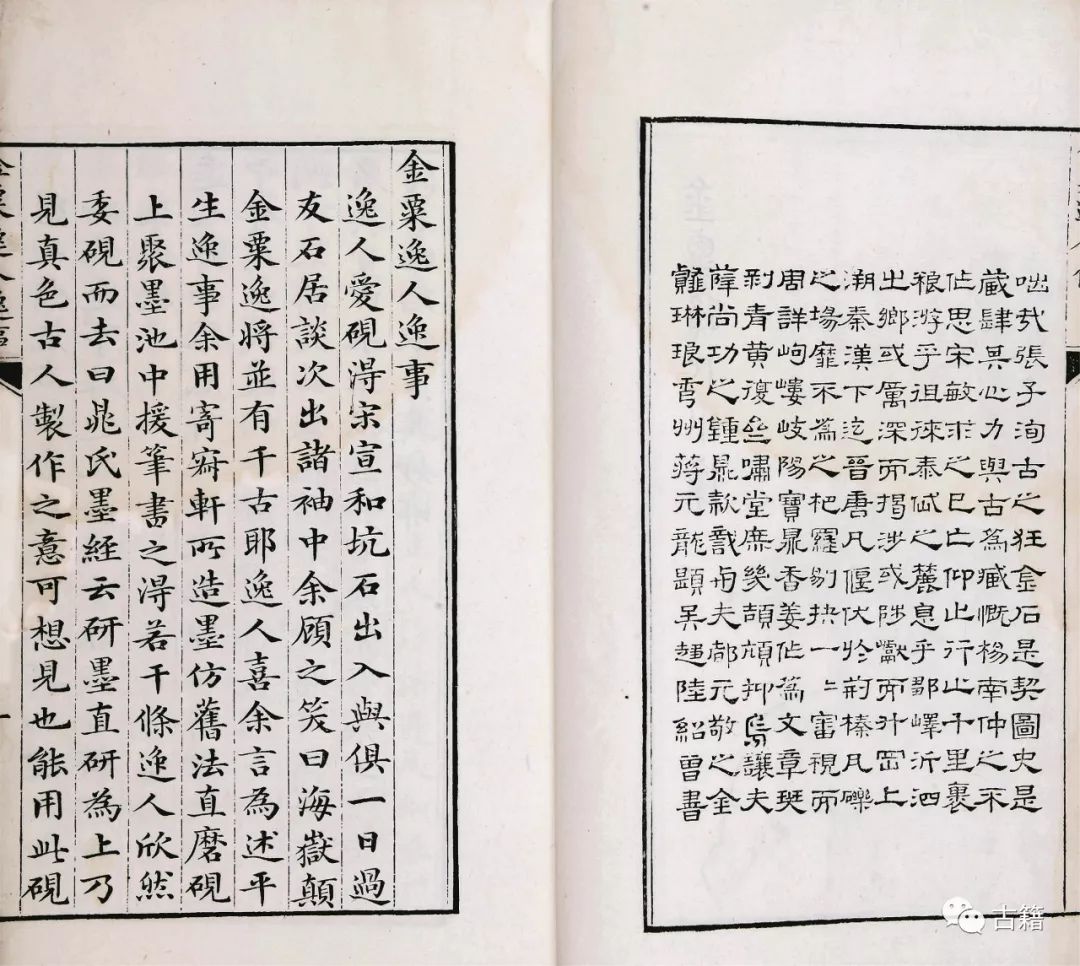 咄哉張子洵古之狂金石是契圖史是
藏肆其心力與古為臧慨楊南仲之不
作思宋敏求之已亡仰止行止千里裹
糧游乎徂徠泰岱之麓息乎鄒嶧沂泗
之鄉或厲深而揭涉或陟巘而升岡上
溯秦漢下迄晉唐凡偃伏於荊榛瓦礫
之場靡不為之杷羅剔抉一二審視而
周詳岣嶁岐陽寶鼎香姜作為文章斑
剥青黃復嘯堂庶幾頡頏抑焉讓夫
薛尚功之鐘鼎款識與夫都元敬之金
薤琳琅州蔣元龍題吳趨陸紹曾書
金粟逸人逸事
逸人愛硯淂宋宣和坑石出入與俱一日過
友石居談次出諸袖中余顧之笑曰海嶽顛
金粟逸將並有千古耶逸人喜余言為述平
生逸事余用寄齋軒所造墨仿舊法直磨硯
上聚墨池中援筆書之淂若干條逸人欣然
委硯而去曰晁氏墨經云研墨直研為上乃
見真色古人製作之意可想見也能用此硯
金粟逸人逸事
一
古籍